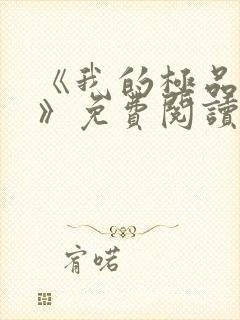 《我的極品
》免費閱讀
宥喏